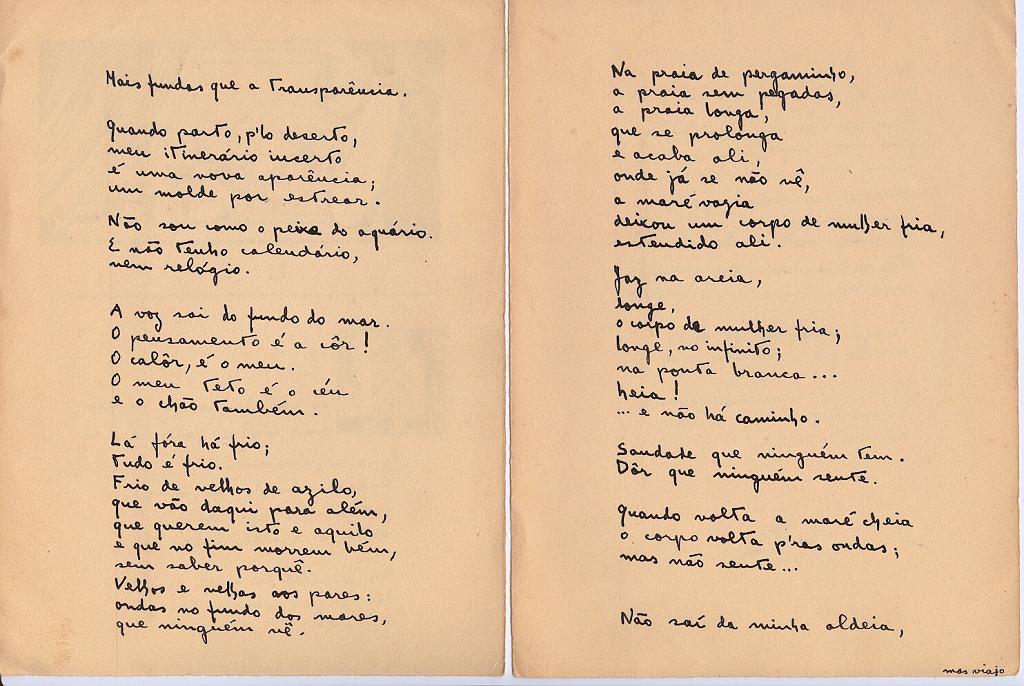 Mais fundas que a Transparência.
Quando parto, p'lo deserto,
meu itinerário incerto
é uma nova aparência;
um molde por estrear.
Não sou como o peixe do aquário.
E não tenho calendário,
nem relógio.
A voz sai do fundo do mar.
O pensamento é a côr!
O calôr, é o meu.
O meu teto é o céu
e o chão também.
Lá fóra há frio;
Tudo é frio.
Frio de velhos de azilo,
que vão daqui para além,
que querem isto e aquilo
e que no fim morrem bém,
sem saber porquê.
Velhos e velhas aos pares:
ondas no fundo dos mares,
que ninguém vê.
Na praia de pergaminho,
a praia sem pegadas,
a praia longa,
que se prolonga
e acaba ali,
onde já se não vê,
a maré vazia
deixou um corpo de mulher fria,
estendido ali.
Jaz na areia,
longe,
o corpo de mulher fria;
longe, no infinito;
na ponta branca...
heia!
... e não há caminho.
Saudade que ninguém tem.
Dôr que ninguém sente.
Quando volta a maré cheia
o corpo volta p'ras ondas;
mas não sente...
Não saí da minha aldeia,
mas viajo